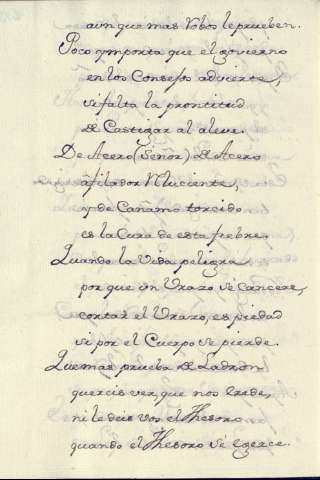 aunque mas Robos le prueben.
Poco ymporta que el govierno
en los Consejos advierta,
si falta la prontitud
de Castigar al aleve.
De Acero (Señor) de Acero
afilador luciente,
y de Cañamo torcido
es la Cura de esta fiebre.
Quando la Vida peligra
por que un Brazo se cancere,
cortar el Brazo, es piedad
si por el Cuerpo se pierde.
Que mas prueba de Ladron
quereis ver, que nos
ni le deis vos el Thesoro
quando el Thesoro se egerce.